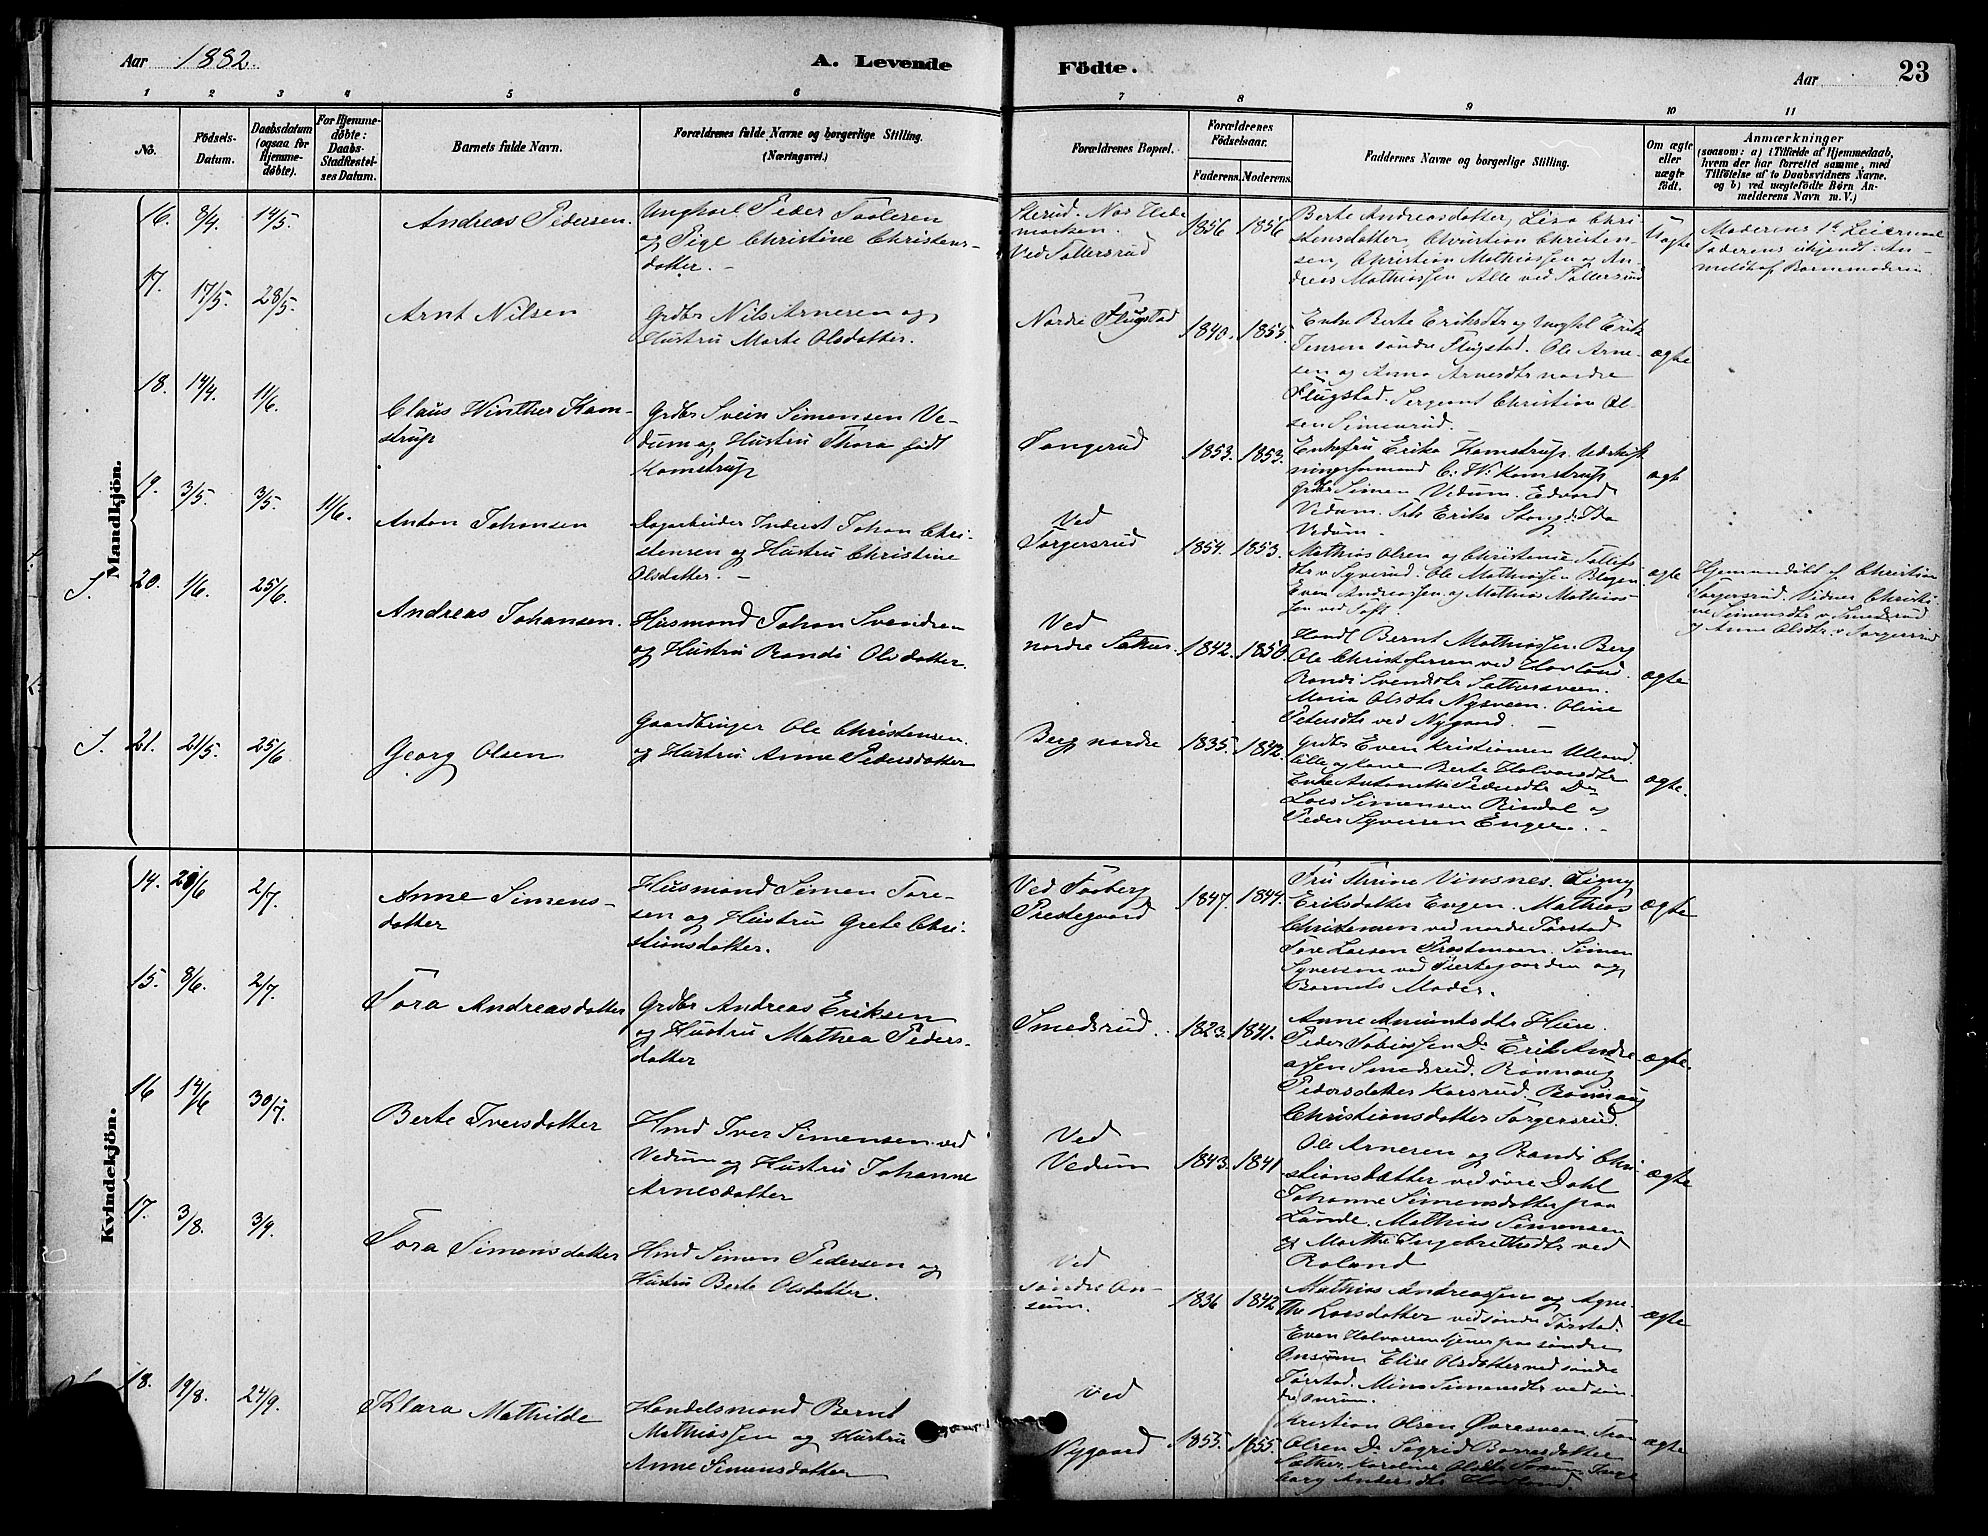 Aar 1882.
A. Levende Födte.
Aar
23
1 2 3 4 5 6 7 8 9 10 11
No.
Födsels-Datum.
Daabsdatum (ogsaa for Hjemme-döbte).
For Hjemme-döbte: Daabs-Stadfæstel-ses Datum.
Barnets fulde Navn.
Forældrenes fulde Navne og borgerlige Stilling.
(Næringsvei.)
Forældrenes Bopæl.
Forældrenes Födselsaar.
Faderens. Moderens.
Faddernes Navne og borgerlige Stilling.
Om ægte eller uægte födt.
Anmærkninger
(saasom: a) i Tilfælde af Hjemmedaab, hvem der har forrettet samme, med Tilföielse af to Daabsvidners Navne, og b) ved uægtefödte Börn An-melderens Navn m. V.)
Mandkjön.
16. 8/4 14/5. Andreas Pedersen.
Ungkarl Peder
og Pige Christine Christens-
datter. -
1856 1856
Berte Andreasdatter, Lisa Chri-
stensdatter, Christian Christen-
sen, Christian Mathiassen og An-
dreas Mathiassen Alle ved
Uægte
Moderens 1st Leiermaal
Faderens ukjendt. An-
meldt af Barnemoderen
17. 17/5. 28/5. Arnt Nilsen
Grdbr Nils Arnesen og
Hustru Marte Olsdatter.
Nordre Flugstad 1840. 1855.
Enke Berte Eriksdtr og Ungkl Erik
Jensen søndre Flugstad. Ole Arne-
sen og Anna Arnesdtr nordre
Flugstad. Sergeant Christian Ol-
sen Simenrud.
ægte
18. 14/4. 11/6. Claus Winther Kam-
strup
Grdbr Svein Simensen Ve-
dum og Hustru Thora født
Kamstrup
1853. 1853.
Enkefru Erika Kamstrup.
C. W. Kamstrup
Grdbr Simen Vedum. Edvard
Vedum. Erika Stang. Ida
Vedum.
ægte
19. 3/5. 3/5. 11/6. Anton Johansen
Dagarbeider Inderst Johan Chri-
stensen og Hustru Christine
Olsdatter. -
Ved
Sorgersrud 1854. 1853.
Mathias Olsen og Christense
Ole Mathiassen
Even Andreassen og Mathias Mathias-
sen ved
ægte
Hjemmedøbt af Christian
Sorgersrud. Vidner Christi-
ne Simensdtr v. Smedsrud
og Anne Olsdtr v. Sorgersrud
J. 20. 1/6. 25/6. Andreas Johansen.
Husmand Johan Svendsen
og Hustru Randi Olsdatter.
Ved
nordre 1842. 1850.
Handl Bernt Mathiassen Berg
Ole Christofersen ved Havland
Randi Svendsdtr
Maria Olsdtr Nysveen. Oline
Petersdtr ved Nygaard. -
ægte
J. 21. 21/5. 25/6 Georg Olsen
Gaardbruger Ole Christensen
og Hustru Anne Pedersdatter
Berg nordre 1835. 1842.
Grdbr Even Kristiansen Ulland
lille og kone Berte Halvorsdtr
Enke Antonette Pedersdtr Do
Lars Simensen Rindal og
Peder Syversen Enger. -
ægte.
Kvindekjön.
14. 20/6 2/7. Anne Simens-
datter
Husmand Simen Tore-
sen og Hustru Grete Chri-
stiansdatter.
Ved Faaberg
Prestegaard 1847. 1844.
Fru Thrine Vinsnes.
Eriksdatter Engen. Mathias
Christensen ved nordre Jørstad
Tore Larsen Prestenseen. Simen
Syversen ved Kirkegaarden og
Barnets Moder.
ægte
15. 8/6. 2/7. Tora Andreasdatter
Grdbr Andreas Eriksen
og Hustru Mathea Peders-
datter
Smedsrud. 1823. 1841.
Anne Amundsdtr Huse.
Peder Tobiassen Do Erik Andre-
assen Smedsrud. Rønnaug
Pedersdatter Korsrud. Rønnaug
Christiansdatter Sorgersrud.
ægte.
16 14/6 30/7. Berte Iversdatter
Hmd Iver Simensen ved
Vedum og Hustru Johanne
Arnesdatter
Ved
Vedum 1843. 1841
Ole Arnesen og Randi Chri-
stiansdatter ved øvre Dahl
Johanne Simensdatter paa
Lunde. Mathias Simensen
og Marthe Ingebretsdtr ved
Roland
ægte
17. 3/8. 3/9. Tora Simensdatter
Hmd Simen Pedersen og
Hustru Berte Olsdatter.
Ved
søndre On-
sum. 1836 1842
Mathias Andreassen og Agne-
the Larsdatter ved søndre Jørstad.
Even Halvorsen tjener paa søndre
Onsum. Elise Olsdatter ved søndre
Jørstad. Mina Simensdtr ved søn-
dre Onsum.
ægte
18. 19/8. 24/9. Klara Mathilde
Handelsmand Bernt
Mathiassen og Hustru
Anne Simensdatter
Ved
Nygaard 1853. 1855.
Kristian Olsen Øveresveen.
Olsen Do Sigrid
Karoline Olsdtr Inge-
borg Andersdtr Havland.
ægte